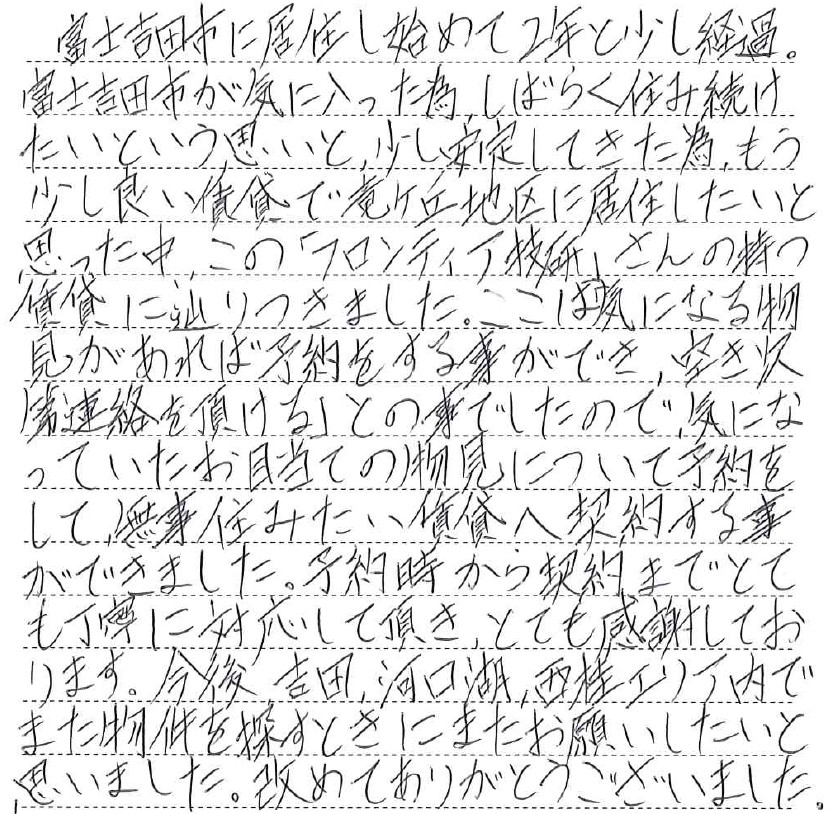 富士吉田市に居住し始めて2年と少し経過。
富士吉田市が気に入った為、しばらく住み続け
たいという思いと、少し安定してきた為、もう
少し良い賃貸で竜ヶ丘地区に居住したいと
思った中、この「フロンティア技研」さんの持つ
賃貸に辿りつきました。ここは「気になる物
見があれば予約をする事ができ、空き次
第連絡を頂ける」との事でしたので、気にな
っていたお目当ての物見について予約を
して、無事住みたい賃貸へ契約する事
ができました。予約時から契約までとて
も丁寧に対応して頂き、とても感謝してお
ります。今後 吉田、河口湖、西桂エリア内で
また物件を探すときにまたお願いしたいと
思いました。改めてありがとうございました。